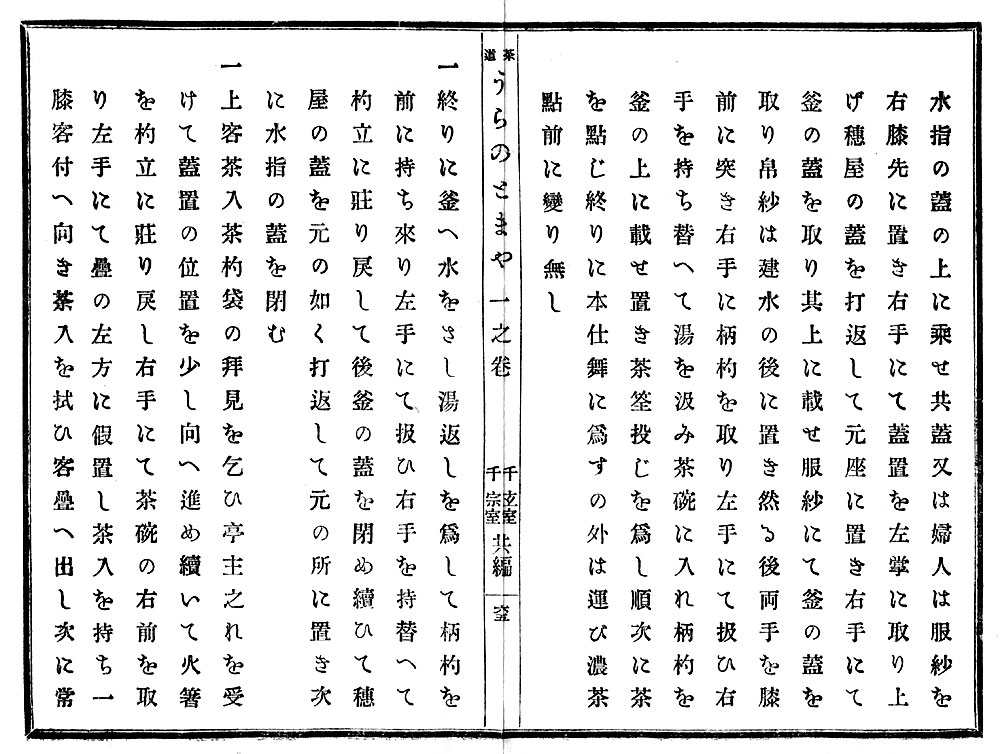 水指の蓋の上に乘せ共蓋又は婦人は服紗を
右膝先に置き右手にて蓋置を左掌に取り上
げ穗屋の蓋を打返して元座に置き右手にて
釜の蓋を取り其上に載せ服紗にて釜の蓋を
取り帛紗は建水の後に置き然る後両手を膝
前に突き右手に柄杓を取り左手にて扱ひ右
手を持ち替へて湯を汲み茶碗に入れ柄杓を
釜の上に載せ置き茶筌投じを爲し順次に茶
を點じ終りに本仕舞に爲すの外は運び濃茶
點前に變り無し
茶道 うらのとまや 一之卷 千玄室 千宗室 共編
一 終りに釜へ水をさし湯返しを爲して柄杓を
前に持ち來り左手にて扱ひ右手を持替へて
杓立に莊り戻して後釜の蓋を閉め續ひて穗
屋の蓋を元の如く打返して元の所に置き次
に水指の蓋を閉む
一 上客茶入茶杓袋の拜見を乞ひ亭主之れを受
けて蓋置の位置を少し向へ進め續いて火箸
を杓立に莊り戻し右手にて茶碗の右前を取
り左手にて疊の左方に假置し茶入を持ち一
膝客付へ向き茶入を拭ひ客疊へ出し次に常